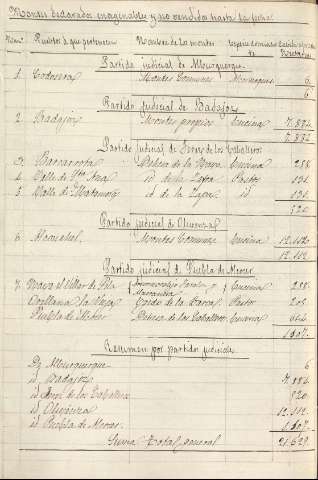 Montes declarados enagenables y no vendidos hasta la fecha
Num.º Pueblos á que pertenecen Nombre de los montes Especie dominante
Partido judicial de Alburquerque
1 Codosera Montes Comunes 6
6
Partido judicial de Badajoz
2 Badajoz Montes propios Encina 7.884
7.884
Partido judicial de Jerez de los Caballeros
3 Barcarrota Dehesa de la Nava Encina 258
4 Valle de Sta Ana id de la Pasto 131
5 Valle de Matamoros id de la id 131
520
Partido judicial de Olivenza
6 Alconchel Montes Comunes Encina 12.112
12.112
Partido judicial de Puebla de Alcocer
7 Nava el Villar de Pela Encina 258
Orellana la Vieja de la Barca Pasto 205
Puebla de Alcocer Dehesa de los Caballeros Encina 644
1.107
Resumen por partido judicial
De Alburquerque 6
id Badajoz 7.884
id Jerez de los Caballeros 520
id Olivenza 12.112
id Puebla de Alcocer 1.107
Suma Total general 21.629